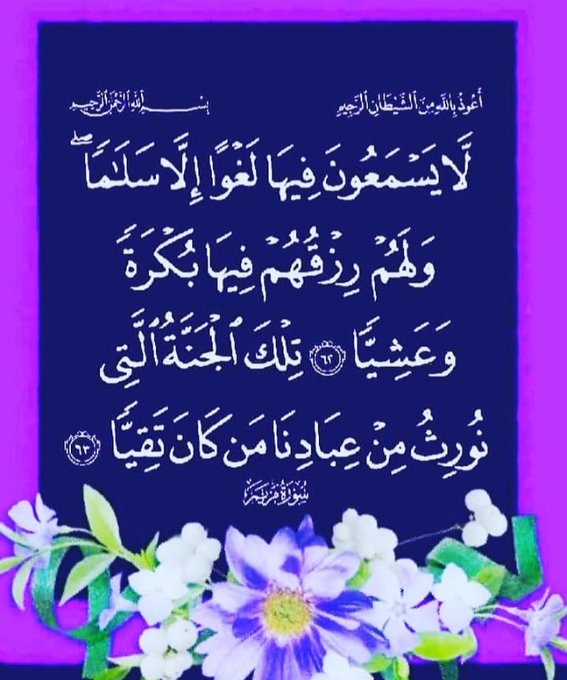 أَعُوذُ بِاللَّهِ مِنَ ٱلشَّيْطَانِ ٱلرَّجِيمِ بِسْمِ ٱللَّهِ ٱلرَّحْمَٰنِ ٱلرَّحِيمِ
لَّا يَسْمَعُونَ فِيهَا لَغْوًا إِلَّا سَلَٰمًا ۖ
وَلَهُمْ رِزْقُهُمْ فِيهَا بُكْرَةً
وَعَشِيًّا ٦٢ تِلْكَ ٱلْجَنَّةُ ٱلَّتِى
نُورِثُ مِنْ عِبَادِنَا مَن كَانَ تَقِيًّا ٦٣
سُورَةُ مَرْيَمَ